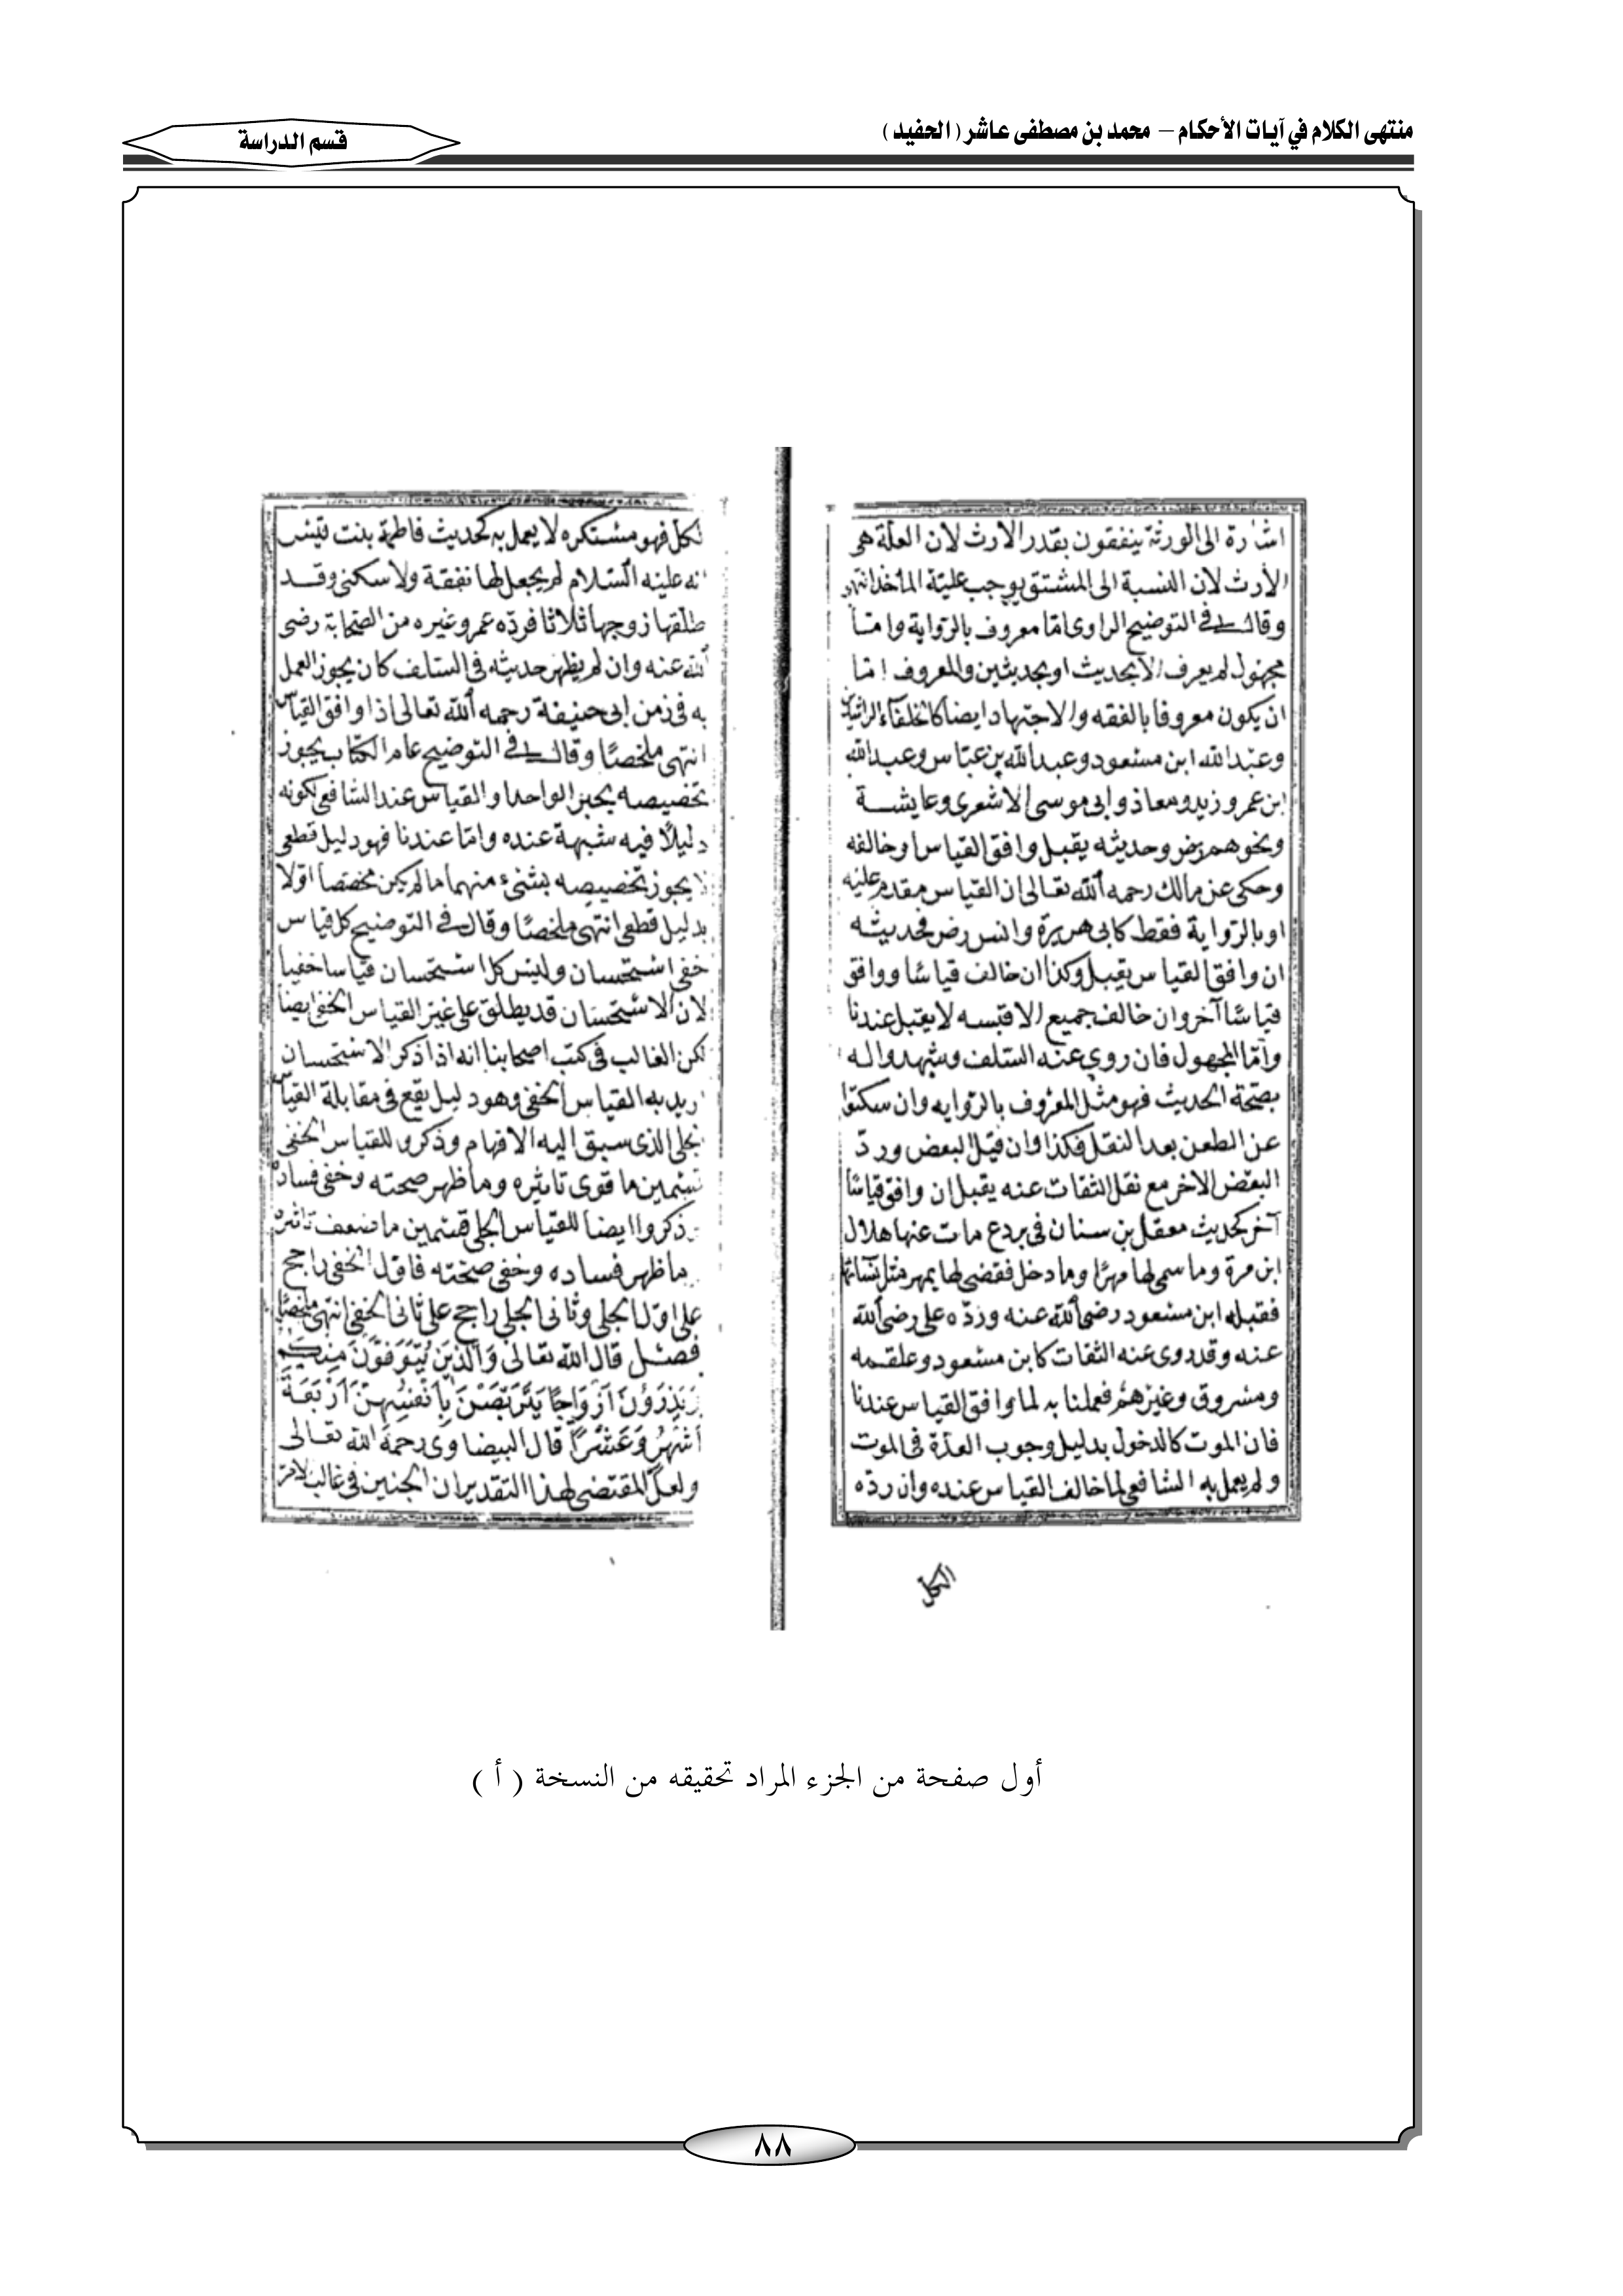 منتهى الكلام في آيات الأحكام – محمد بن مصطفى عاشر ( الحفيد )
قسم الدراسة
اشارة الى الورثة ينفقون بقدر الارث لان العلة هى
الأرث لان النسبة الى المشتق يوجب علية المأخذ انتهى
وقال فى التوضيح الراوى امّا معروف بالرّواية وامّا
مجهول لم يعرف الا بحديث او بحديثين والمعروف امّا
ان يكون معروفا بالفقه والاجتهاد ايضا كالخلفآء الراشدين
وعبد الله ابن مسعود وعبد الله بن عبّاس وعبد الله
ابن عمر وزيد ومعاذ وابى موسى الاشعرى وعايشة
ونحوهم رض وحديثه يقبل وافق القياس او خالفه
وحكى عن مالك رحمه الله تعالى ان القياس مقدم عليه
او بالرّواية فقط كابى هريرة وانس رض فحديثه
ان وافق القياس يقبل وكذا ان خالف قياسًا ووافق
قياسًا آخر وان خالف جميع الاقيسه لا يقبل عندنا
وامّا المجهول فان روى عنه السّلف وشهدوا له
بصّحة الحديث فهو مثل المعروف بالرّوايه وان سكتوا
عن الطعن بعد النقل فكذا وان قبل البعض وردّ
البعض الاخر مع نقل الثقات عنه يقبل ان وافق قياسًا
آخر كحديث معقل بن سنان فى بردع مات عنها هلال
ابن مرة وما سمى لها مهرًا وما دخل فقضى لها بمهر مثل نسائها
فقبله ابن مسعود رضى الله عنه وردّه على رضى الله
عنه وقد روى عنه الثقات كابن مسعود وعلقمه
ومسروق وغيرهم فعملنا به لما وافق القياس عندنا
فان الموت كالدخول بدليل وجوب العدّة فى الموت
ولم يعمل به الشافعى لما خالف القياس عنده وان ردّه
الكل
لكل فهو مستنكره لا يعمل به كحديث فاطمة بنت قيس
انه عليه السّلام لم يجعل لها نفقة ولا سكنى وقد
طلقها زوجها ثلاثا فردّه عمر وغيره من الصّحابة رضى
الله عنه وان لم يظهر حديثه فى السّلف كان يجوز العمل
به فى زمن ابى حنيفة رحمه الله تعالى اذا وافق القياس
انتهى ملخصًا وقال فى التوضيح عام الكتاب يجوز
تخصيصه بخبر الواحد والقياس عند الشافعى لكونه
دليلًا فيه شبهة عنده وامّا عندنا فهو دليل قطعى
لا يجوز تخصيصه بشئ منهما ما لم يكن مخصّصا اوّلا
بدليل قطعى انتهى ملخصًا وقال فى التوضيح كل قياس
خفى استحسان وليس كل استحسان قياسا خفيا
لان الاستحسان قد يطلق على غير القياس الخفى ايضا
لكن الغالب فى كتب اصحابنا انه اذا ذكر الاستحسان
اريد به القياس الخفى وهو دليل يقع فى مقابلة القياس
الجلى الذى سبق اليه الافهام وذكروا للقياس الخفى
قسمين ما قوى تاثيره وما ظهر صحته وخفى فساده
وذكروا ايضا للقياس الجلى قسمين ما ضعف تاثيره
وما ظهر فساده وخفى صحّته فاوّل الخفى راجح
على اوّل الجلى وثانى الجلى راجح على ثانى الخفى انتهى ملخصًا
فصل قال الله تعالى وَالَّذِينَ يُتَوَفَّوْنَ مِنْكُمْ
وَيَذَرُونَ اَزْوَاجًا يَتَرَبَّصْنَ بِاَنْفُسِهِنَّ اَرْبَعَةَ
اَشْهُرٍ وَعَشْرًا قال البيضاوى رحمه الله تعالى
ولعلّ المقتضى لهذا التقدير ان الجنين فى غالب الامر
أول صفحة من الجزء المراد تحقيقه من النسخة ( أ )
٨٨